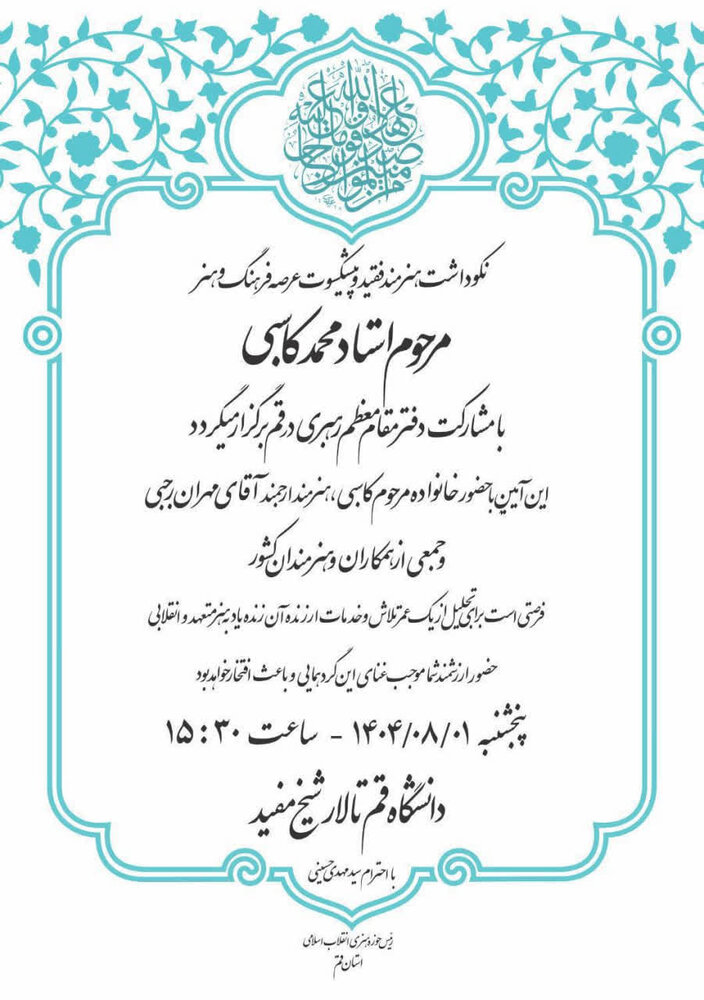 من المؤمنین رجال صدقوا ما عاهدوا الله علیه
نکوداشت هنرمند فقید و پیشکسوت عرصه فرهنگ و هنر
مرحوم استاد محمد کاسبی
با مشارکت دفتر مقام معظم رهبری در قم برگزار میگردد
این آیین با حضور خانواده مرحوم کاسبی، هنرمند ارجمند آقای مهران رجبی
و جمعی از همکاران و هنرمندان کشور
فرصتی است برای تجلیل از یک عمر تلاش و خدمات ارزنده آن زنده یاد به هنر متعهد و انقلابی
حضور ارزشمند شما موجب غنای این گردهمایی و باعث افتخار خواهد بود
پنجشنبه ۱۴۰۴/۰۸/۰۱ - ساعت ۱۵:۳۰
دانشگاه قم تالار شیخ مفید
با احترام سید مهدی حسینی
رئیس حوزه هنری انقلاب اسلامی
استان قم